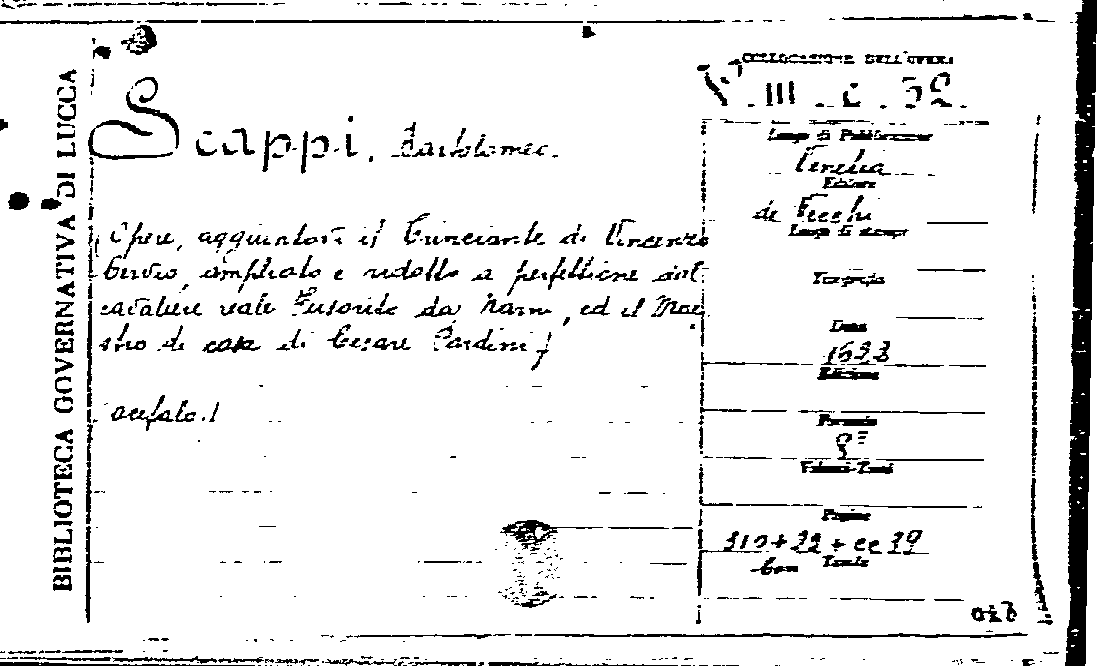 BIBLIOTECA GOVERNATIVA DI LUCCA
Scappi, Bartolomeo.
Opere, aggiuntovi il Trinciante di Vincenzo
Cervio, ampliato e ridotto a perfettione dal
cavaliere reale Fusorito da Narni, ed il Mae
stro di casa di Cesare Pandini
acefalo.
COLLOCAZIONE DELL'OPERA
III. c. 32.
Luogo di Pubblicazione
Venetia
Editore
de Vecchi
Luogo di stampa
Tipografia
Data
1622
Edizione
Formato
8º
Volumi-Tomi
Pagine
310+22+cc 39
con Tavole